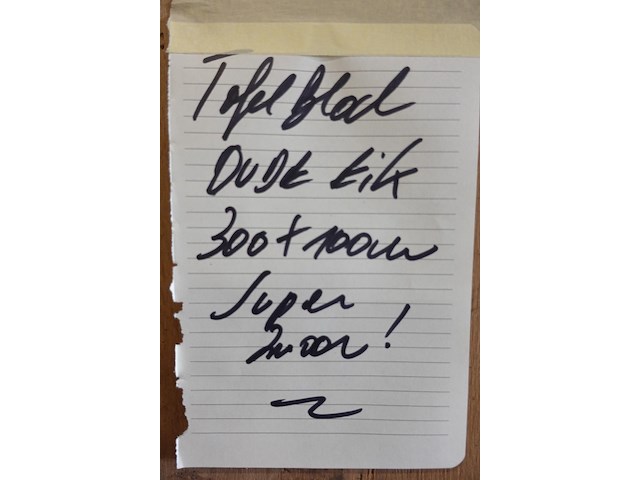 Tafel Blad
OUDE EiK
300 + 100cm
Super
zwaar!